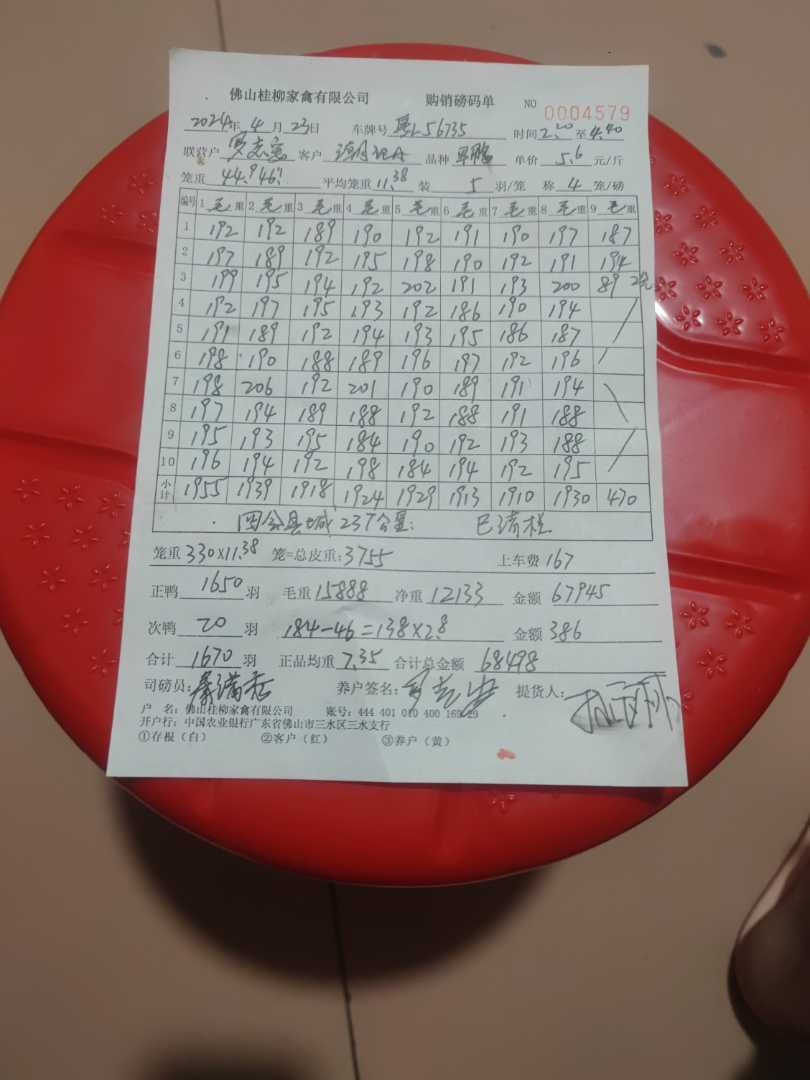 佛山桂柳家禽有限公司 购销磅码单 NO 0004579
2024年 4月 23日 车牌号 56735 时间 2.20 至 4.40
联营户 罗志 客户 品种 单价 5.6 元/斤
笼重 44.946 平均笼重 11.38 装 5 羽/笼 称 4 笼/磅
编号 1 毛重 2 毛重 3 毛重 4 毛重 5 毛重 6 毛重 7 毛重 8 毛重 9 毛重
1 192 192 189 190 192 191 190 197 187
2 197 189 192 195 198 190 192 191 194
3 199 195 194 192 202 191 193 200 89
4 192 197 195 193 192 186 190 194
5 191 189 192 194 193 195 186 187
6 198 190 188 189 196 197 192 196
7 198 206 192 201 190 189 191 194
8 197 194 189 188 192 188 191 188
9 195 193 195 184 190 192 193 188
10 196 194 192 198 184 194 192 195
小计 1955 1939 1918 1924 1929 1913 1910 1930 470
县城 237公里: 已清栏
笼重 330×11.38 笼=总皮重: 3755 上车费 167
正鸭 1650 羽 毛重 15888 净重 12133 金额 67945
次鸭 20 羽 184-46=138×2.8 金额 386
合计 1670 羽 正品均重 7.35 合计总金额 68498
司磅员: 养户签名: 提货人:
户 名: 佛山桂柳家禽有限公司 账号: 444 401 010 400 169 29
开户行: 中国农业银行广东省佛山市三水区三水支行
①存根(白) ②客户(红) ③养户(黄)